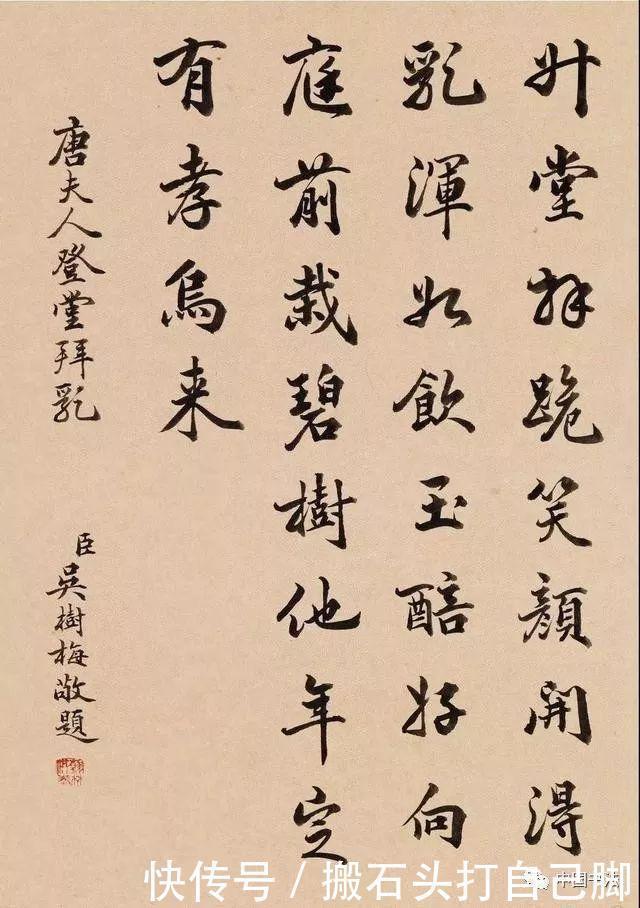 升堂拜跪笑顏開得
乳渾如飲玉醅好向
庭前栽碧樹他年定
有孝烏来
唐夫人登堂拜乳
臣吳樹梅敬題
快传号 / 搬石头打自己脚